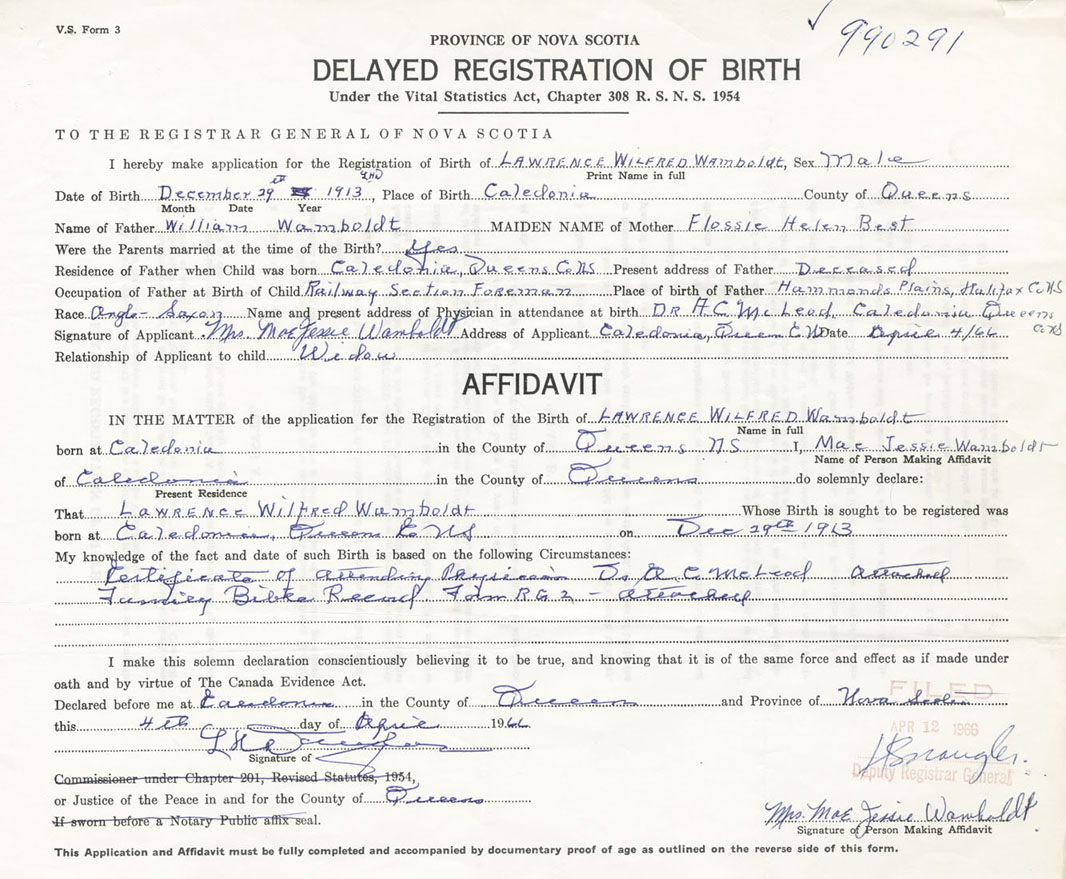 V.S. Form 3
990291
PROVINCE OF NOVA SCOTIA
DELAYED REGISTRATION OF BIRTH
Under the Vital Statistics Act, Chapter 308 R. S. N. S. 1954
TO THE REGISTRAR GENERAL OF NOVA SCOTIA
I hereby make application for the Registration of Birth of LAWRENCE WILFRED Wamboldt, Sex Male
Print Name in full
Date of Birth December 29th 1913, Place of Birth Caledonia County of Queens
Month Date Year
Name of Father William Wamboldt MAIDEN NAME of Mother Flossie Helen Best
Were the Parents married at the time of the Birth? Yes
Residence of Father when Child was born Caledonia, Queens Co NS Present address of Father Deceased
Occupation of Father at Birth of Child Railway Section Foreman Place of birth of Father Hammonds Plains, Halifax Co NS
Race Anglo-Saxon Name and present address of Physician in attendance at birth DR A.C. McLeod, Caledonia Queens Co NS
Signature of Applicant Mrs. Mae Jessie Wamboldt Address of Applicant Caledonia, Queen C N Date April 4/66
Relationship of Applicant to child Widow
AFFIDAVIT
IN THE MATTER of the application for the Registration of the Birth of LAWRENCE WILFRED Wamboldt
Name in full
born at Caledonia in the County of Queens NS I, Mae Jessie Wamboldt
Name of Person Making Affidavit
of Caledonia in the County of Queens do solemnly declare:
Present Residence
That LAWRENCE Wilfred Wamboldt Whose Birth is sought to be registered was
born at Caledonia, Queens Co NS on Dec 29th 1913
My knowledge of the fact and date of such Birth is based on the following Circumstances:
Certificate of Attending Physician Dr A C McLeod Attached
Family Bible Record Form RG 2 - Attached
I make this solemn declaration conscientiously believing it to be true, and knowing that it is of the same force and effect as if made under
oath and by virtue of The Canada Evidence Act.
FILED
Declared before me at Caledonia in the County of Queens and Province of Nova Scotia
this 4th day of April 1966
APR 12 1966
Signature of
Deputy Registrar General
Commissioner under Chapter 201, Revised Statutes, 1954,
or Justice of the Peace in and for the County of Queens
If sworn before a Notary Public affix seal.
Mrs. Mae Jessie Wamboldt
Signature of Person Making Affidavit
This Application and Affidavit must be fully completed and accompanied by documentary proof of age as outlined on the reverse side of this form.